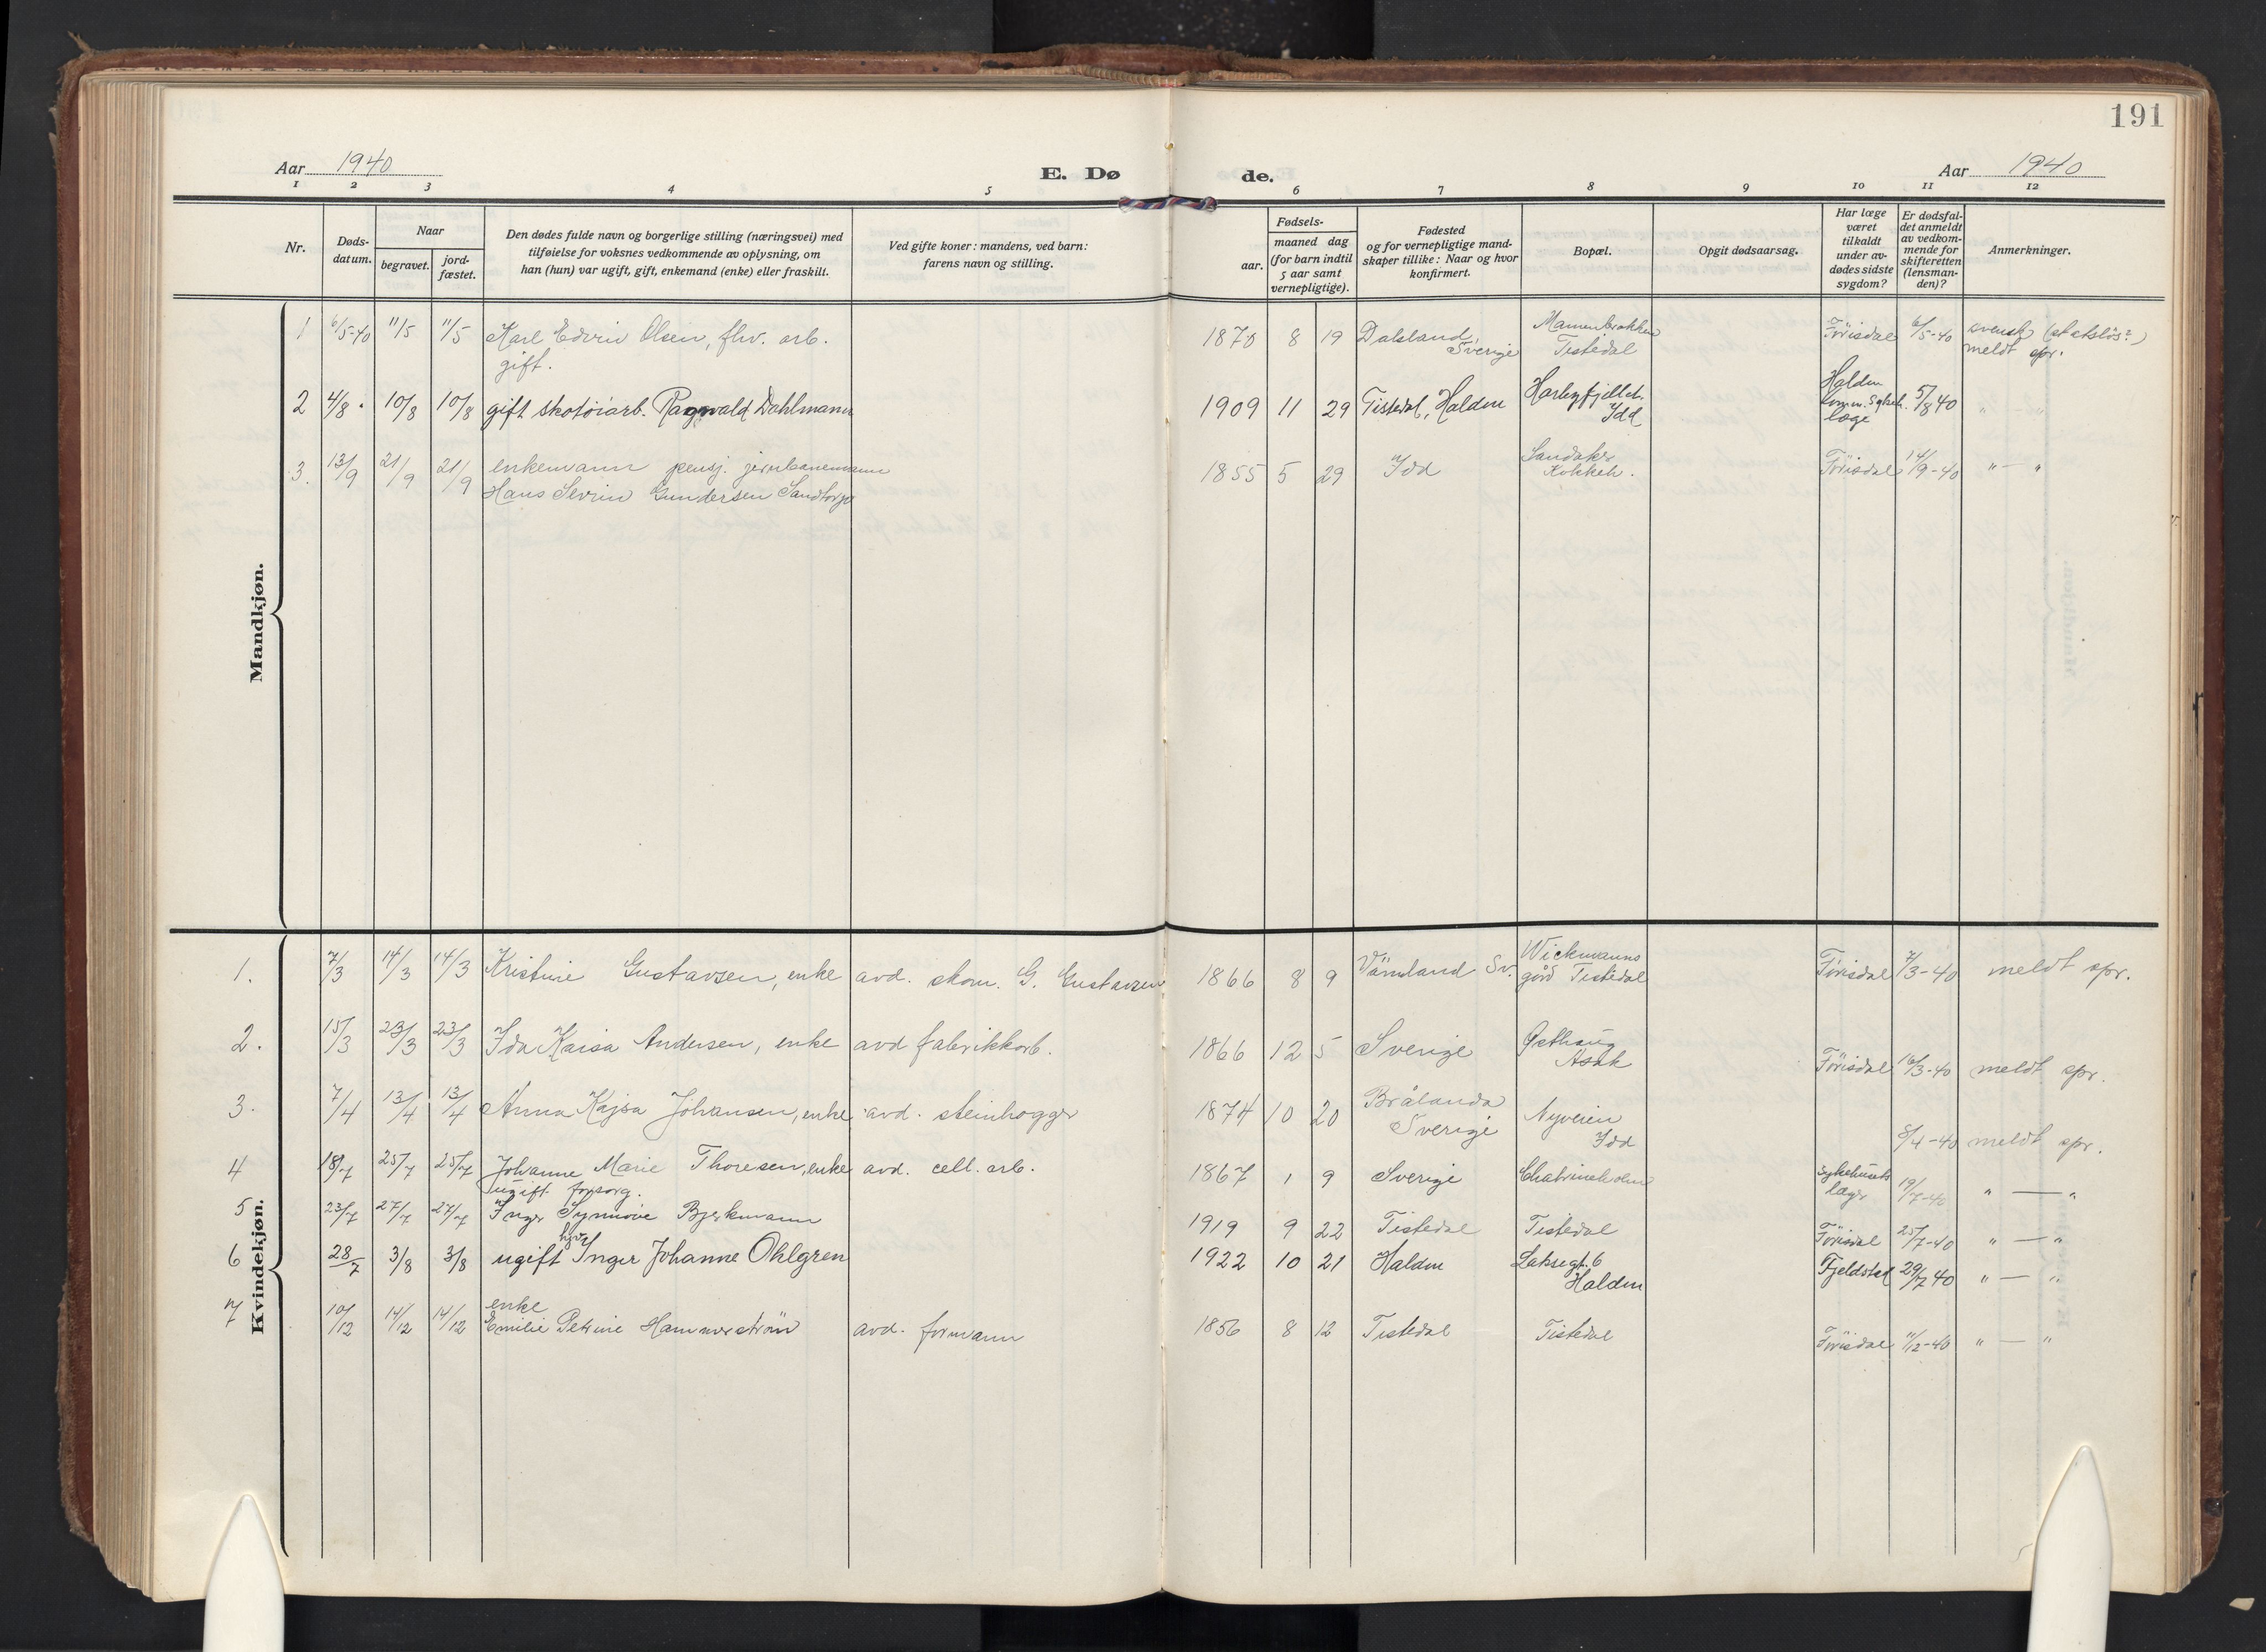 191
Aar 1940
E. Dø
de.
Aar 1940
1 2 3 4 5 6 7 8 9 10 11 12
Nr.
Døds-
datum.
Naar
begravet.
jord-
fæstet.
Den dødes fulde navn og borgerlige stilling (næringsvei) med
tilføielse for voksnes vedkommende av oplysning, om
han (hun) var ugift, gift, enkemand (enke) eller fraskilt.
Ved gifte koner: mandens, ved barn:
farens navn og stilling.
Fødsels-
aar.
maaned dag
(for barn indtil
5 aar samt
vernepligtige).
Fødested
og for vernepligtige mand-
skaper tillike: Naar og hvor
konfirmert.
Bopæl.
Opgit dødsaarsag.
Har læge
været
tilkaldt
under av-
dødes sidste
sygdom?
Er dødsfal-
det anmeldt
av vedkom-
mende for
skifteretten
(lensman-
den)?
Anmerkninger.
Mandkjøn.
1 6/5-40 11/5 11/5 Karl Edvin Olsen, fhv. arb.
gift.
1870 8 19 Dalsland,
Sverige
Tistedal
Förisdal 6/5-40 svensk (statsløs?)
meldt spr.
2 4/8. 10/8 10/8 gift skotøiarb. Ragnvald Dahlmann
1909 11 29 Tistedal, Halden
Idd
Halden
komm. sykeh.
læge
5/8 40 " — "
3. 13/9 21/9 21/9 enkemann pensj. jernbanemann
Hans Sevrin Gundersen Sandtorp
1855 5 29 Idd
Sandaker
Kokkeh.
Förisdal 14/9-40 " — "
Kvindekjøn.
1. 7/3 14/3 14/3 Kristine Gustavsen, enke avd. skom. G. Gustavsen
1866 8 9 Värmland Sv.
Wickmanns
gård Tistedal
Förisdal 7/3-40 meldt spr.
2. 15/3 23/3 23/3 Ida Kaisa Andersen, enke avd fabrikkarb.
1866 12 5 Sverige
Østhaug
Asak
Förisdal 16/3-40 meldt spr.
3. 7/4 13/4 13/4 Anna Kajsa Johansen, enke avd. steinhogger
1874 10 20 Brålanda
Sverige
Nyveien
Idd
8/4-40 meldt spr.
4 18/7 25/7 25/7 Johanne Marie Thoresen, enke avd. cell. arb.
1867 1 9 Sverige Chatrineholm
sykehusets
læger
19/7-40 " — "
ugift forsorg.
5 23/7 27/7 27/7 Inger Synnøve Bjerkmann
1919 9 22 Tistedal Tistedal Förisdal 25/7-40 " — "
6 28/7 3/8 3/8 ugift Inger Johanne Ohlgren
1922 10 21 Halden Laksegt. 6
Halden
Fjeldstad 29/7 40 " — "
enke
7 10/12 14/12 14/12 Emilie Petrine Hammerström avd. formann
1856 8 12 Tistedal Tistedal Förisdal 11/12-40 " — "